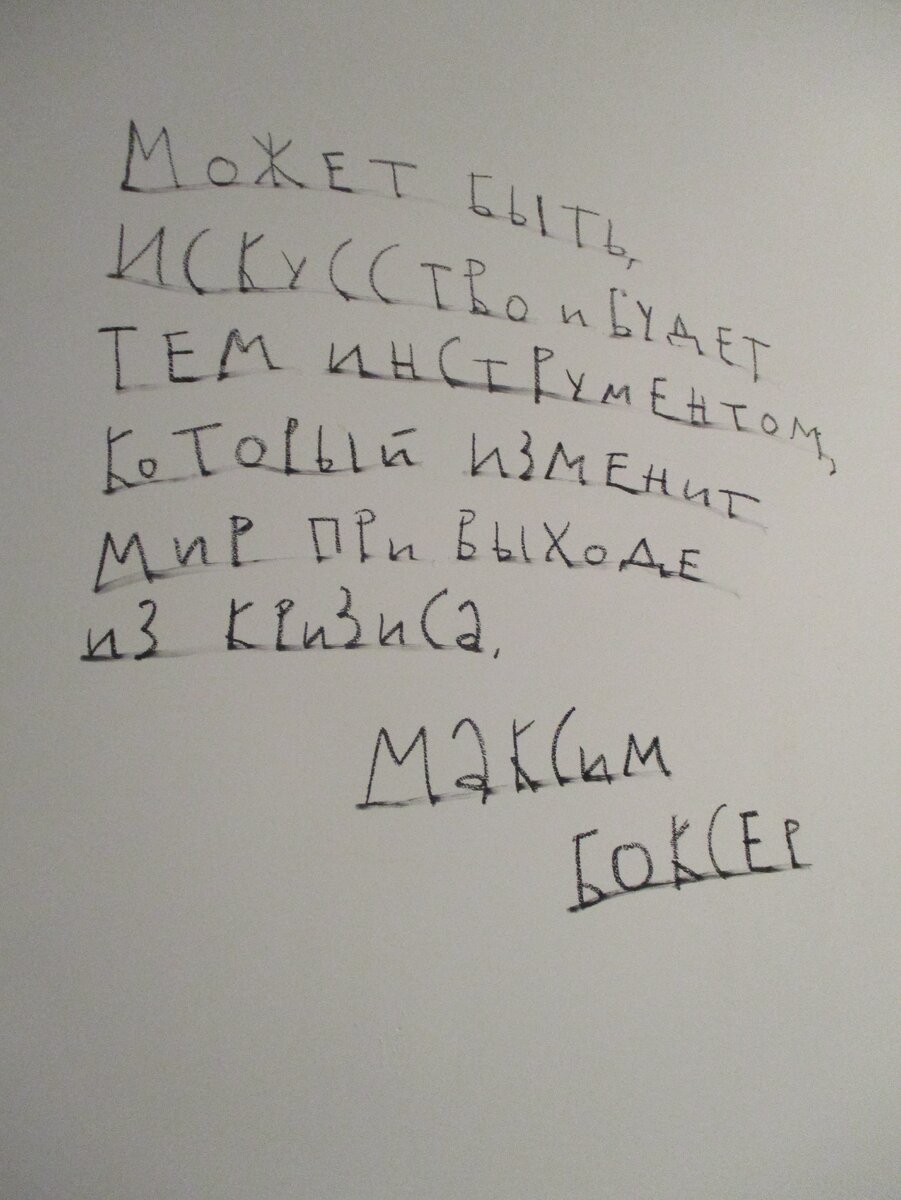 Может быть,
искусство и будет
тем инструментом,
который изменит
мир при выходе
из кризиса.
Максим
Боксер